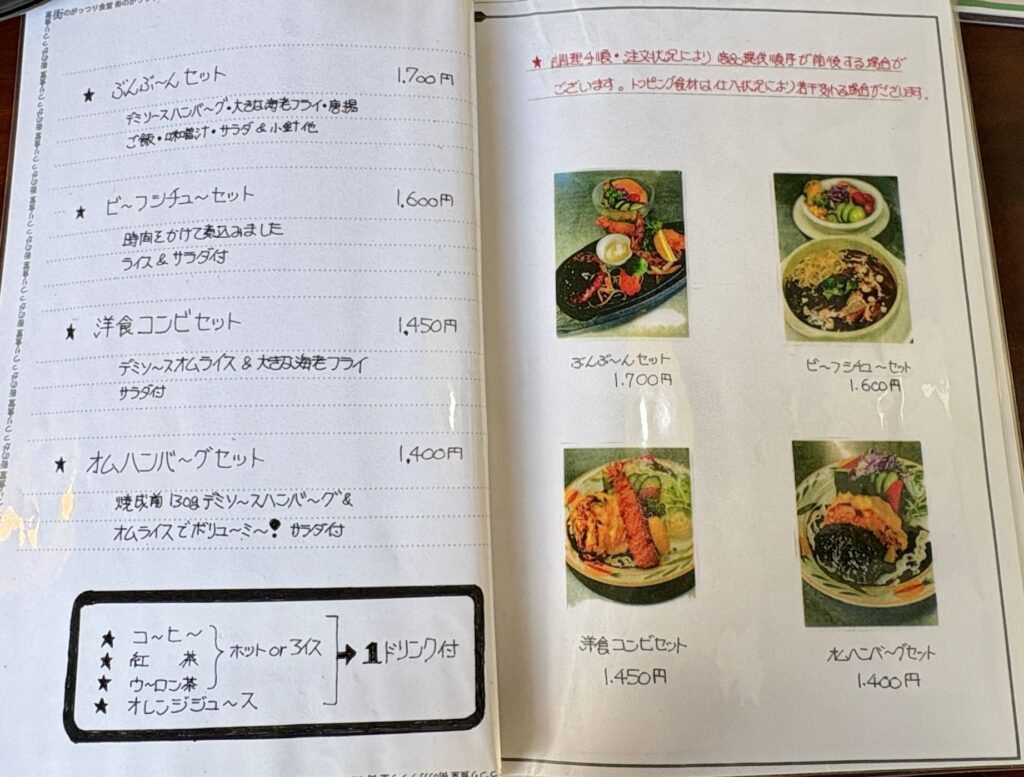 街のがっつり食堂 街のがっつ
★ ぶんぶ〜んセット 1.700円
デミソースハンバーグ・大きな海老フライ・唐揚
ご飯・味噌汁・サラダ & 小針他
★ ビ〜フシチュ〜セット 1.600円
時間をかけて煮込みました
ライス & サラダ付
★ 洋食コンビセット 1.450円
デミソ〜スオムライス & 大きな海老フライ
サラダ付
★ オムハンバ〜グセット 1.400円
焼成前 130g デミソ〜スハンバ〜グ &
オムライスでボリュ〜ミ〜! サラダ付
★ コ〜ヒ〜
★ 紅 茶
★ ウ〜ロン茶
★ オレンジジュ〜ス
ホット or アイス
➡ 1ドリンク付
★ 調理手順・注文状況により商品提供順序が前後する場合が
ございます。トッピング食材は仕入状況により若干変わる場合がございます。
ぶんぶ〜んセット
1.700円
ビ〜フシチュ〜セット
1.600円
洋食コンビセット
1.450円
オムハンバ〜グセット
1.400円